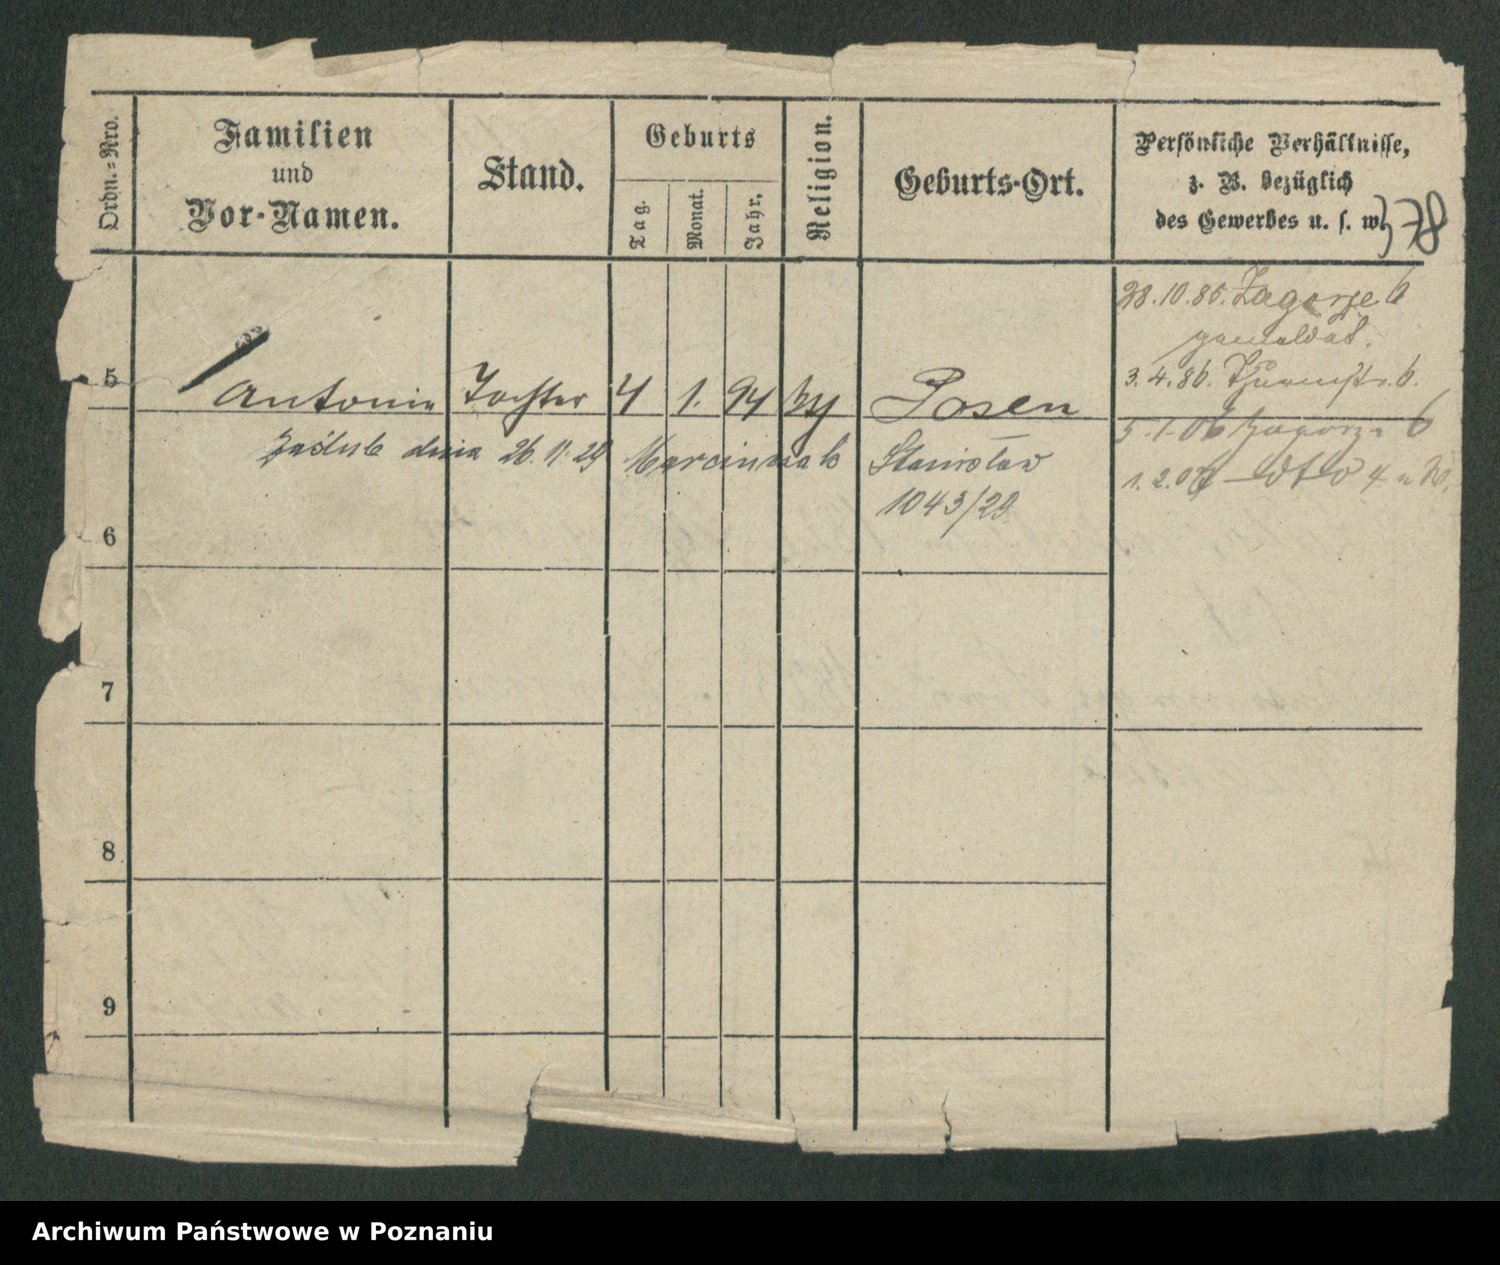 Ordn.=Nro.
Familien
und
Vor-Namen.
Stand.
Geburts
Tag.
Monat.
Jahr.
Religion.
Geburts-Ort.
Persönliche Verhältnisse,
z. B. bezüglich
des Gewerbes u. s. w.
28.10.85. Zagorze 6
3.4.86.
5 Antonie Tochter 4 1. 94 Posen
5.1.06 Zagorze 6
zaślub dnia 26.11.29 Marciniak Stanisław
1.2.07 dto 4
1043/29
6
7
8
9
Archiwum Państwowe w Poznaniu